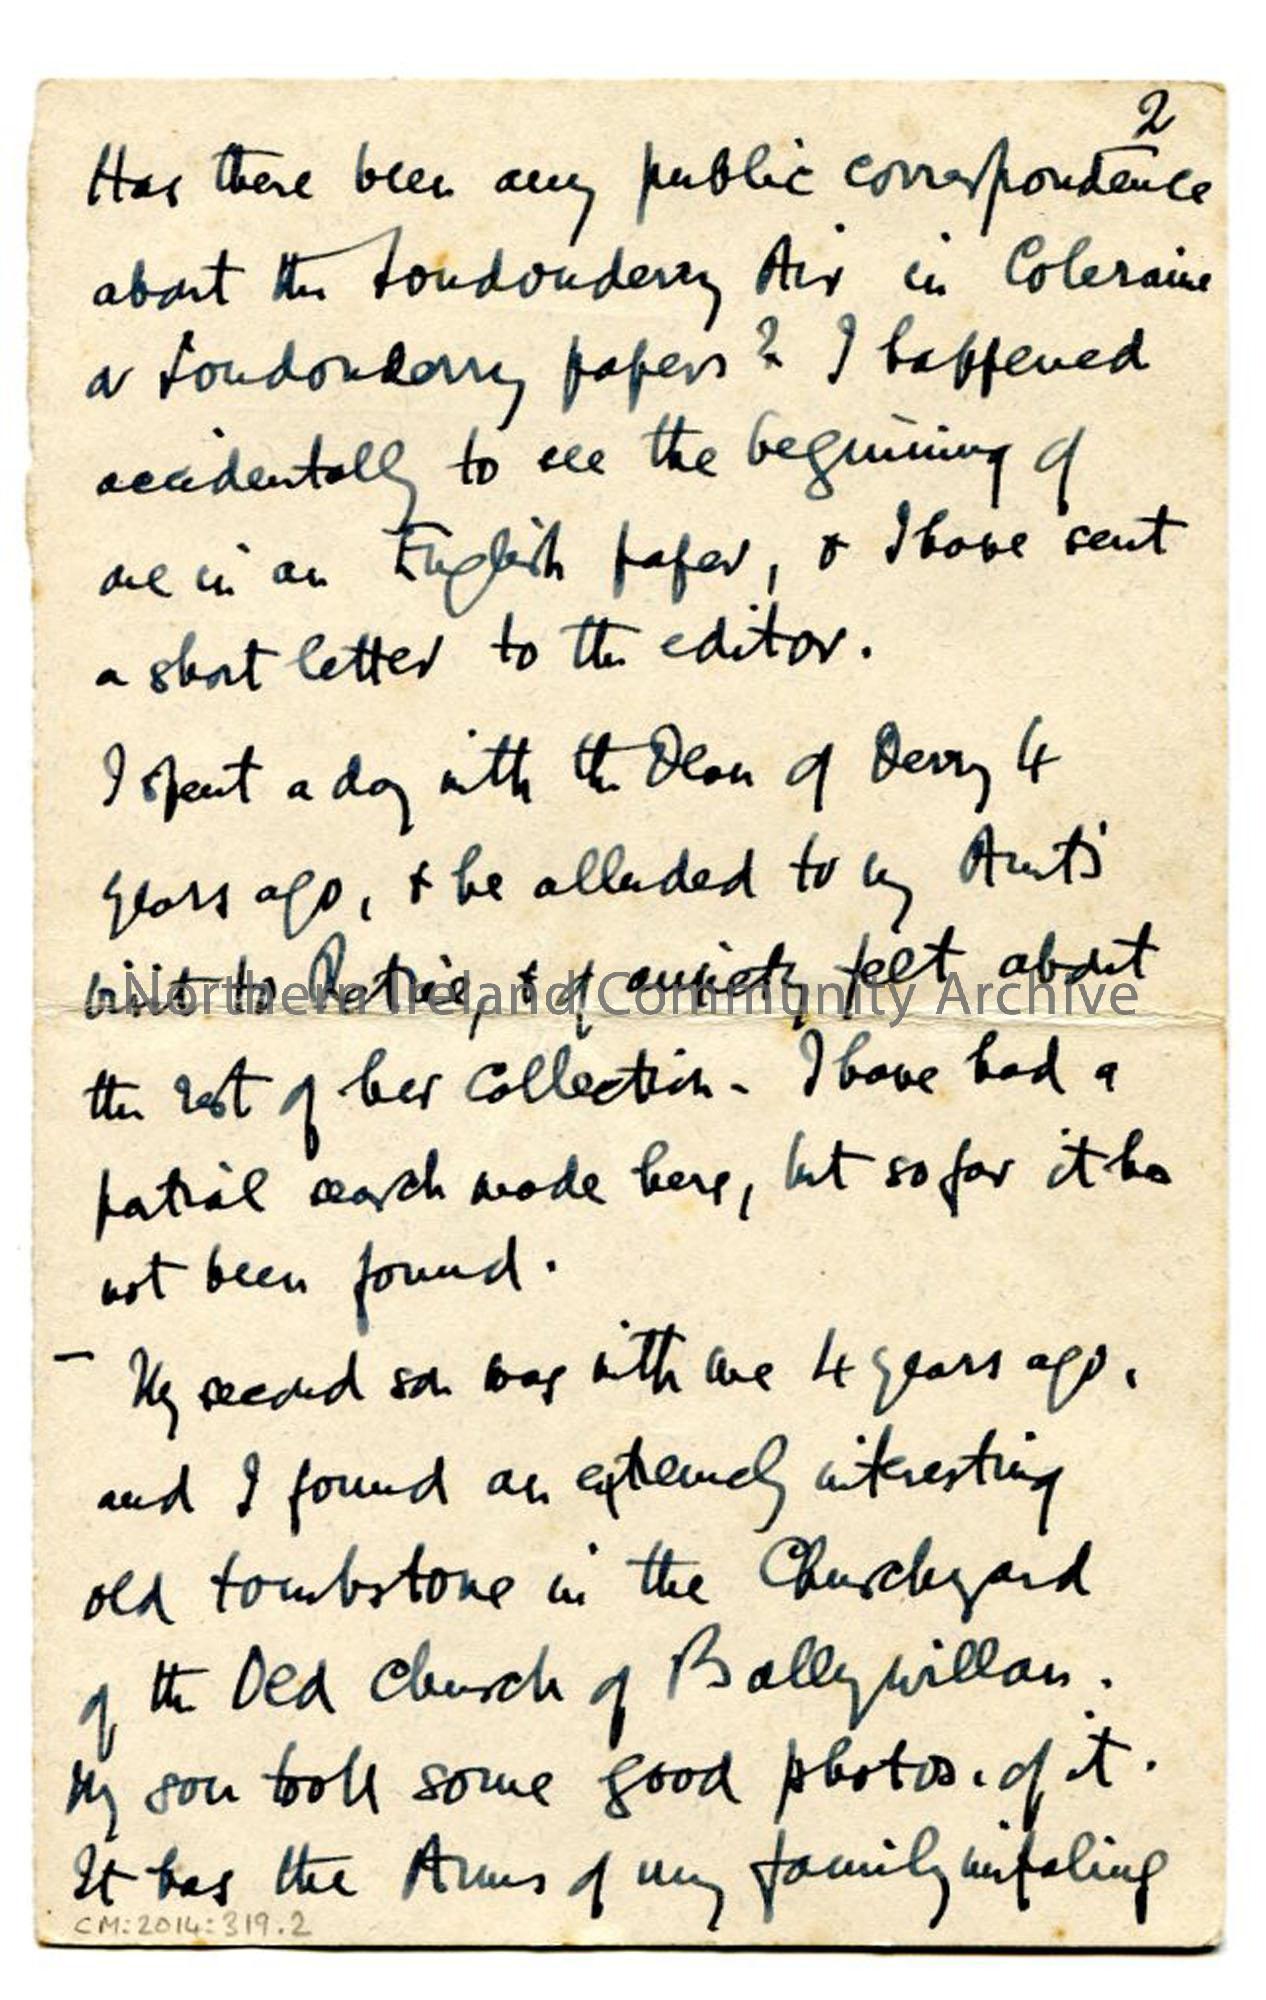 2
Has there been any public correspondence
about the Londonderry Air in Coleraine
or Londonderry papers? I happened
accidentally to see the beginning of
one in an English paper, & I have sent
a short letter to the editor.
I spent a day with the Dean of Derry 4
years ago, & he alluded to my Aunt's
visit to Petrie, & of anxiety felt about
the rest of her Collection - I have had a
partial search made here, but so far it has
not been found.
- My second son was with me 4 years ago,
and I found an extremely interesting
old tombstone in the Churchyard
of the Old Church of Ballywillan.
My son took some good photos. of it.
It has the Arms of my family impaling
CM:2014:319.2
Northern Ireland Community Archive